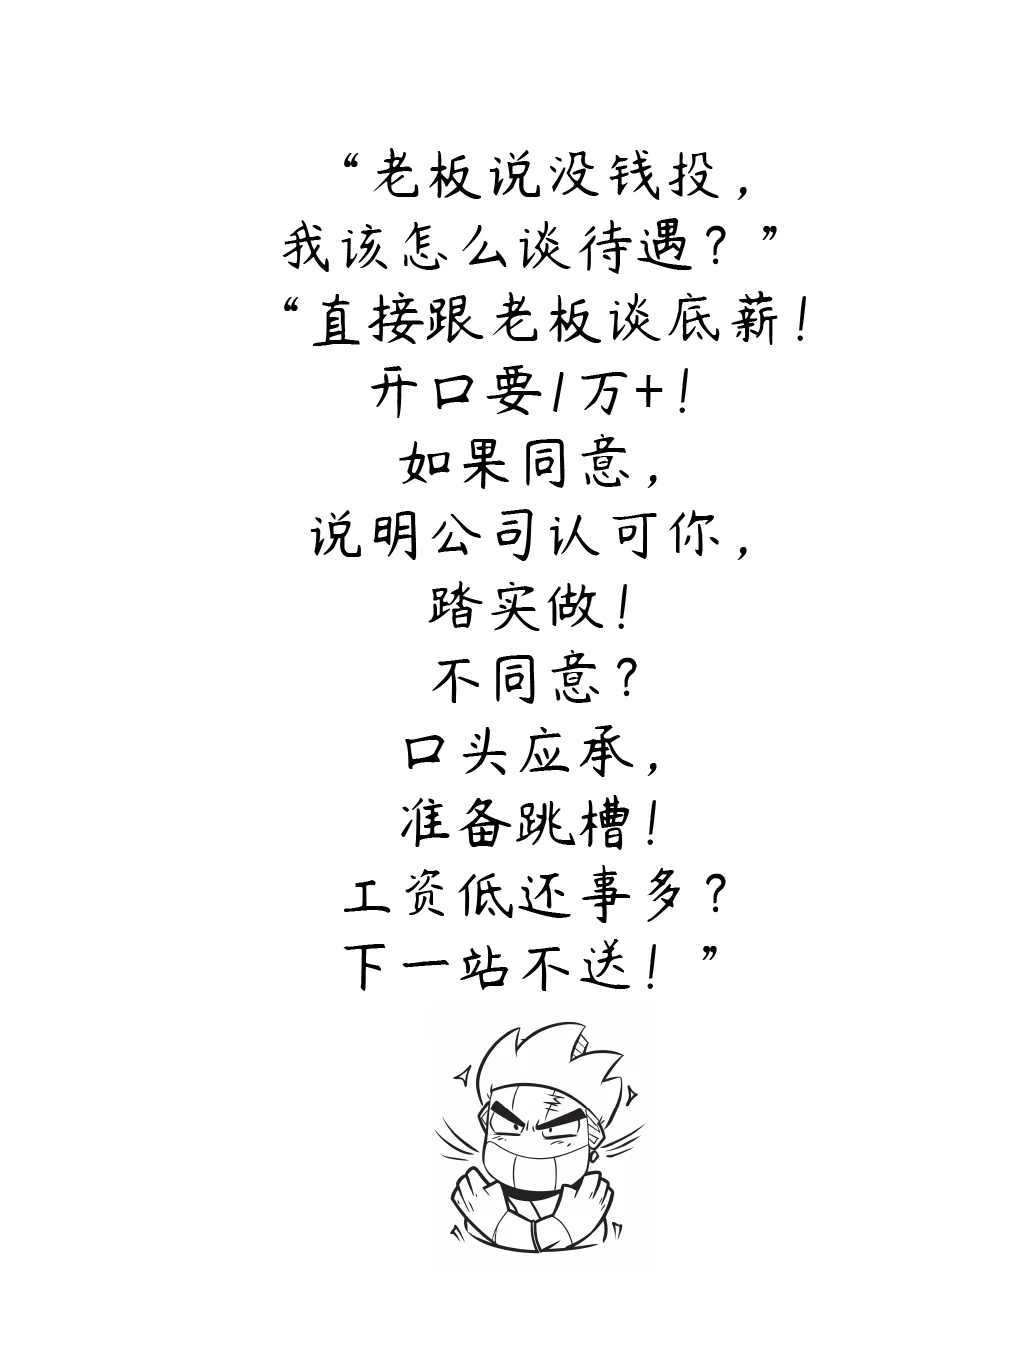 “老板说没钱投，
我该怎么谈待遇？”
“直接跟老板谈底薪！
开口要1万+！
如果同意，
说明公司认可你，
踏实做！
不同意？
口头应承，
准备跳槽！
工资低还事多？
下一站不送！”